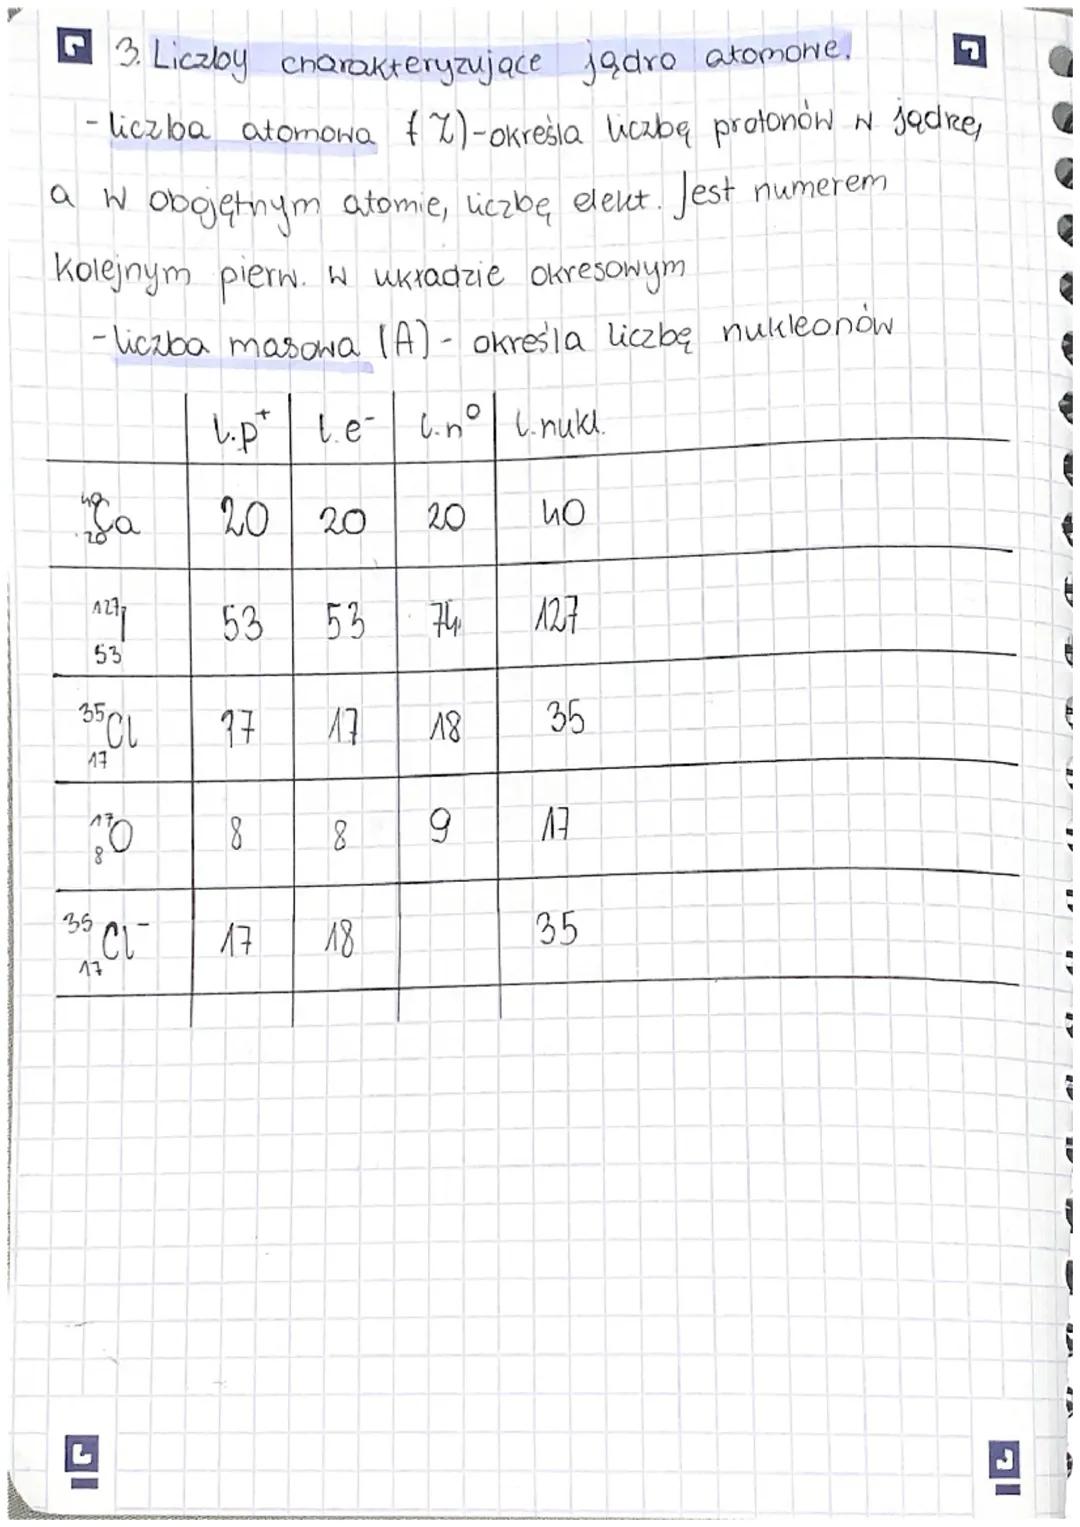 3. Liczby charakteryzujące jądro atomowe.
- liczba atomowa (Z) - określa liczbę protonów w jądrze,
a w obojętnym atomie, liczbę elekt. Jest numerem
kolejnym pierw. w układzie okresowym
- liczba masowa (A) - określa liczbę nukleonów
l.p⁺ l.e⁻ l.n⁰ l.nukl.
⁴⁰₂₀Ca 20 20 20 40
¹²⁷₅₃I 53 53 74 127
³⁵₁₇Cl 17 17 18 35
¹⁷₈O 8 8 9 17
³⁵₁₇Cl⁻ 17 18 35